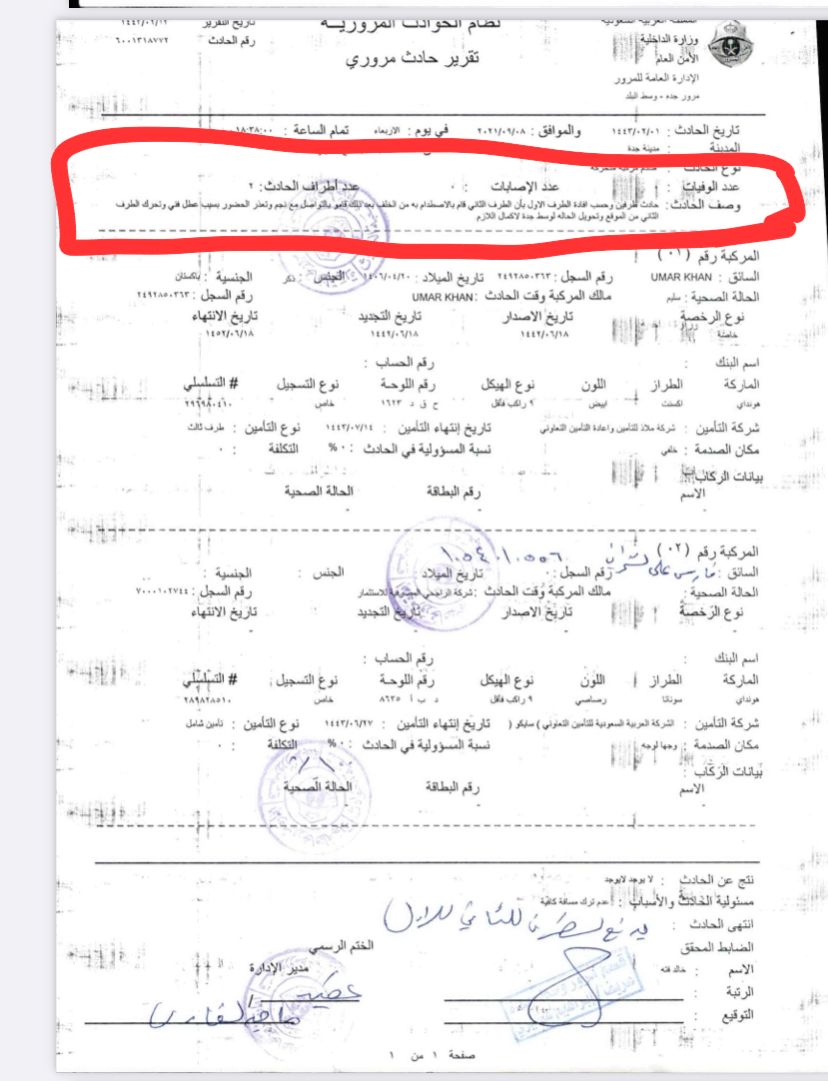 نظام الحوادث المرورية
تقرير حادث مروري
المملكة العربية السعودية
وزارة الداخلية
الأمن العام
الإدارة العامة للمرور
مرور جده - وسط البلد
تاريخ التقرير :
رقم الحادث : ٦٠٠١٣١٨٧٧٢
تاريخ الحادث : ١٤٤٣/٠٢/٠١ والموافق : ٢٠٢١/٠٩/٠٨ في يوم : الاربعاء تمام الساعة : ١٨:٣٨:٠٠
المدينة : مدينة جدة
نوع الحادث :
عدد الوفيات : ٠ عدد الإصابات : ٠ عدد أطراف الحادث: ٢
وصف الحادث : حادث طرفين وحسب افادة الطرف الاول بأن الطرف الثاني قام بالاصطدام به من الخلف بعد ذلك قامو بالتواصل مع نجم وتعذر الحضور بسبب عطل فني وتحرك الطرف
الثاني من الموقع وتحويل الحاله لوسط جدة لاكمال اللازم
المركبة رقم (٠١)
السائق : UMAR KHAN رقم السجل : ٢٤٩٢٨٥٠٣٦٣ تاريخ الميلاد : ١٤٠٦/٠٤/٢٠ الجنس : ذكر الجنسية : باكستان
الحالة الصحية : سليم مالك المركبة وقت الحادث : UMAR KHAN رقم السجل : ٢٤٩٢٨٥٠٣٦٣
نوع الرخصة تاريخ الاصدار تاريخ التجديد تاريخ الانتهاء
خاصة ١٤٤٢/٠٦/١٨ ١٤٤٢/٠٦/١٨ ١٤٥٢/٠٦/١٨
اسم البنك : رقم الحساب :
الماركة الطراز اللون نوع الهيكل رقم اللوحة نوع التسجيل # التسلسلي
هونداي اكسنت ابيض ٩ راكب فأقل ح ق د ١٦٢٣ خاص ٢٩٦٩٨٠٤١٠
شركة التأمين : شركة ملاذ للتأمين واعادة التأمين التعاوني تاريخ إنتهاء التأمين : ١٤٤٣/٠٧/١٤ نوع التأمين : طرف ثالث
مكان الصدمة : خلفي نسبة المسؤولية في الحادث : ٠% التكلفة : ٠
بيانات الركاب :
الاسم رقم البطاقة الحالة الصحية
- - -
المركبة رقم (٠٢)
السائق : فارس علي رقم السجل : ١٠٥٤٠١٠٥٥٦ تاريخ الميلاد الجنس : الجنسية :
الحالة الصحية : مالك المركبة وقت الحادث : شركة الراجحي المصرفية للاستثمار رقم السجل : ٧٠٠٠١٠٢٧٤٤
نوع الرخصة تاريخ الاصدار تاريخ التجديد تاريخ الانتهاء
- - - -
اسم البنك : رقم الحساب :
الماركة الطراز اللون نوع الهيكل رقم اللوحة نوع التسجيل # التسلسلي
هونداي سوناتا رصاصي ٩ راكب فأقل د ب أ ٨٦٣٥ خاص ٢٨٩٨٢٨٥١٠
شركة التأمين : الشركة العربية السعودية للتأمين التعاوني ) سايكو ( تاريخ إنتهاء التأمين : ١٤٤٣/٠٦/٢٧ نوع التأمين : تأمين شامل
مكان الصدمة : وجها لوجه نسبة المسؤولية في الحادث : ٠% التكلفة : ٠
%١٠٠
بيانات الركاب :
الاسم رقم البطاقة الحالة الصحية
- - -
نتج عن الحادث : لا يوجد لايوجد
مسئولية الحادث والأسباب : عدم ترك مسافة كافية
انتهى الحادث :
الضابط المحقق الختم الرسمي
الاسم : خالد فته مدير الإدارة
الرتبة :
التوقيع :
صفحة ١ من ١